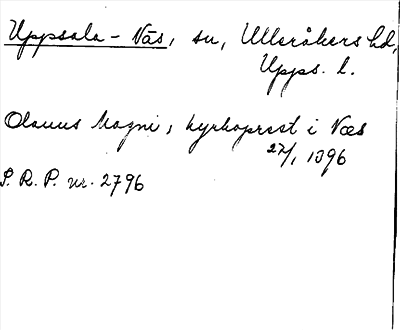 Uppsala-Näs, sn, Ulleråkers hd,
Upps. l.
Olauus Magni, kyrkoprest i Næs
27/1 1396
S. R. P. nr. 2796